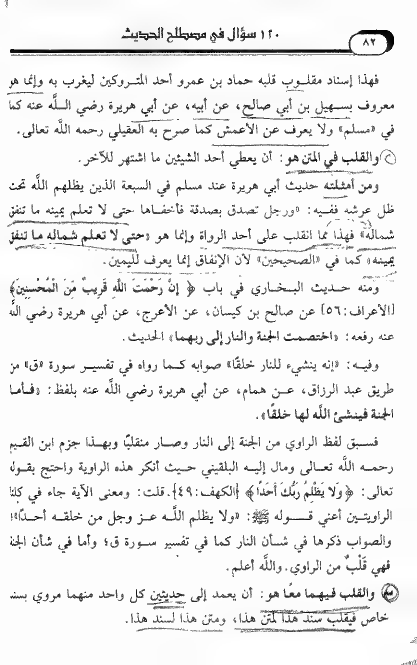 ١٢٠ سؤال في مصطلح الحديث
٨٢
فهذا إسناد مقلوب قلبه حماد بن عمرو أحد المتروكين ليغرب به وإنما هو
معروف بسهيل بن أبي صالح، عن أبيه، عن أبي هريرة رضي اللَّه عنه كما
في «مسلم» ولا يعرف عن الأعمش كما صرح به العقيلي رحمه اللَّه تعالى.
والقلب في المتن هو: أن يعطي أحد الشيئين ما اشتهر للآخر.
ومن أمثلته حديث أبي هريرة عند مسلم في السبعة الذين يظلهم اللَّه تحت
ظل عرشه ففيه: «ورجل تصدق بصدقة فأخفاها حتى لا تعلم يمينه ما تنفق
شماله» فهذا مما انقلب على أحد الرواة وإنما هو «حتى لا تعلم شماله ما تنفق
يمينه» كما في «الصحيحين» لأن الإنفاق إنما يعرف لليمين.
ومنه حديث البخاري في باب ﴿ إِنَّ رَحْمَتَ اللَّهِ قَرِيبٌ مِّنَ الْمُحْسِنِينَ﴾
[الأعراف:٥٦] عن صالح بن كيسان، عن الأعرج، عن أبي هريرة رضي اللَّه
عنه رفعه: «اختصمت الجنة والنار إلى ربهما» الحديث.
وفيه: «إنه ينشيء للنار خلقًا» صوابه كما رواه في تفسير سورة «ق» من
طريق عبد الرزاق، عن همام، عن أبي هريرة رضي اللَّه عنه بلفظ: «فأما
الجنة فينشئ اللَّه لها خلقًا».
فسبق لفظ الراوي من الجنة إلى النار وصار منقلبًا وبهذا جزم ابن القيم
رحمه اللَّه تعالى ومال إليه البلقيني حيث أنكر هذه الراوية واحتج بقوله
تعالى: ﴿ وَلَا يَظْلِمُ رَبُّكَ أَحَدًا ﴾ [الكهف:٤٩]. قلت: ومعنى الآية جاء في كلتا
الراويتين أعني قوله ﷺ: «ولا يظلم اللَّه عز وجل من خلقه أحدًا»!
والصواب ذكرها في شأن النار كما في تفسير سورة ق؛ وأما في شأن الجنة
فهي قَلْبٌ من الراوي. واللَّه أعلم.
والقلب فيهما معًا هو: أن يعمد إلى حديثين كل واحد منهما مروي بسند
خاص فيقلب سند هذا لمتن هذا، ومتن هذا لسند هذا.